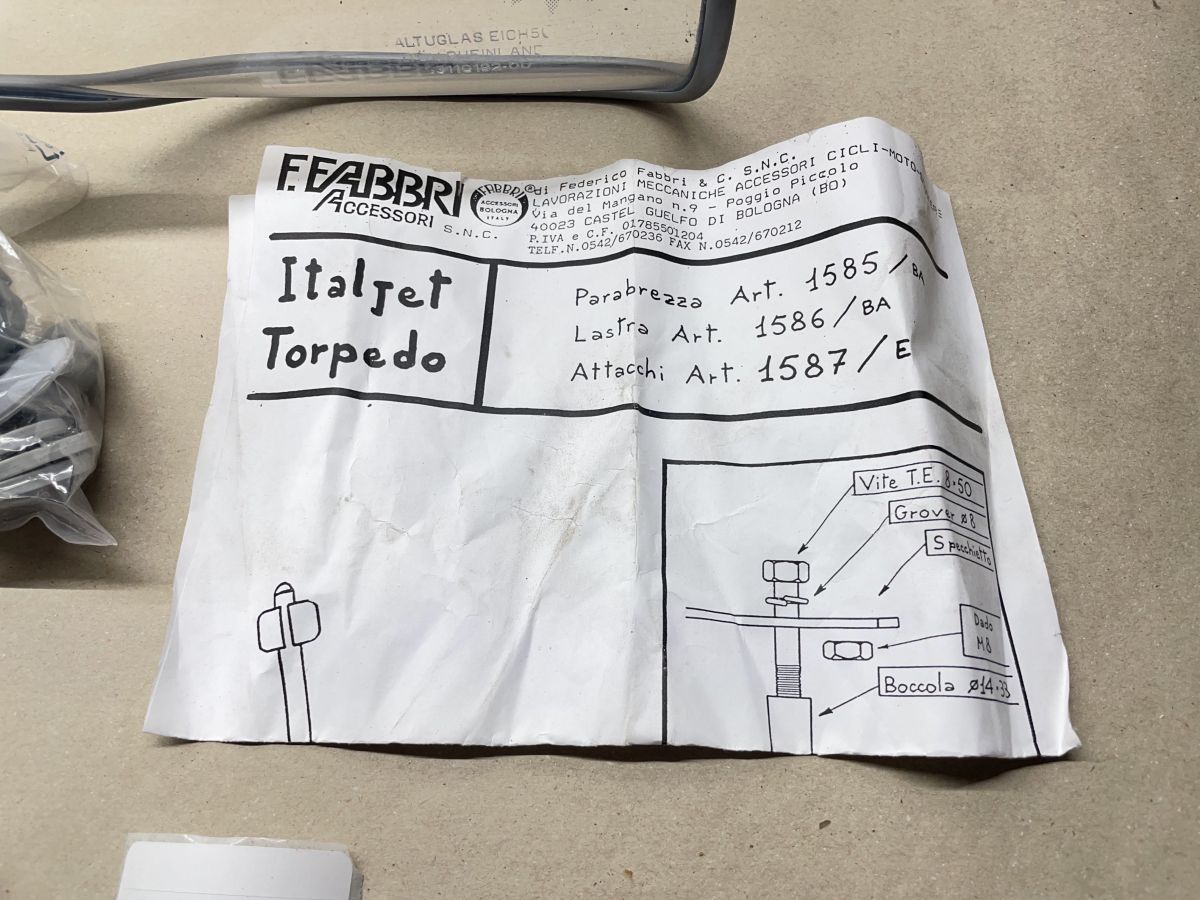 ALTUGLAS
F.FABBRI
ACCESSORI S.N.C.
FABBRI
ACCESSORI
BOLOGNA
ITALY
®
di Federico Fabbri & C. S.N.C.
LAVORAZIONI MECCANICHE ACCESSORI CICLI-MOTO-
Via del Mangano n.9 - Poggio Piccolo
40023 CASTEL GUELFO DI BOLOGNA (BO)
P.IVA e C.F. 01785501204
TELF.N.0542/670236 FAX N.0542/670212
Italjet
Torpedo
Parabrezza Art. 1585/BA
Lastra Art. 1586/BA
Attacchi Art. 1587/E
Vite T.E. 8·50
Grover ø8
Specchietto
Dado
M8
Boccola ø14·33